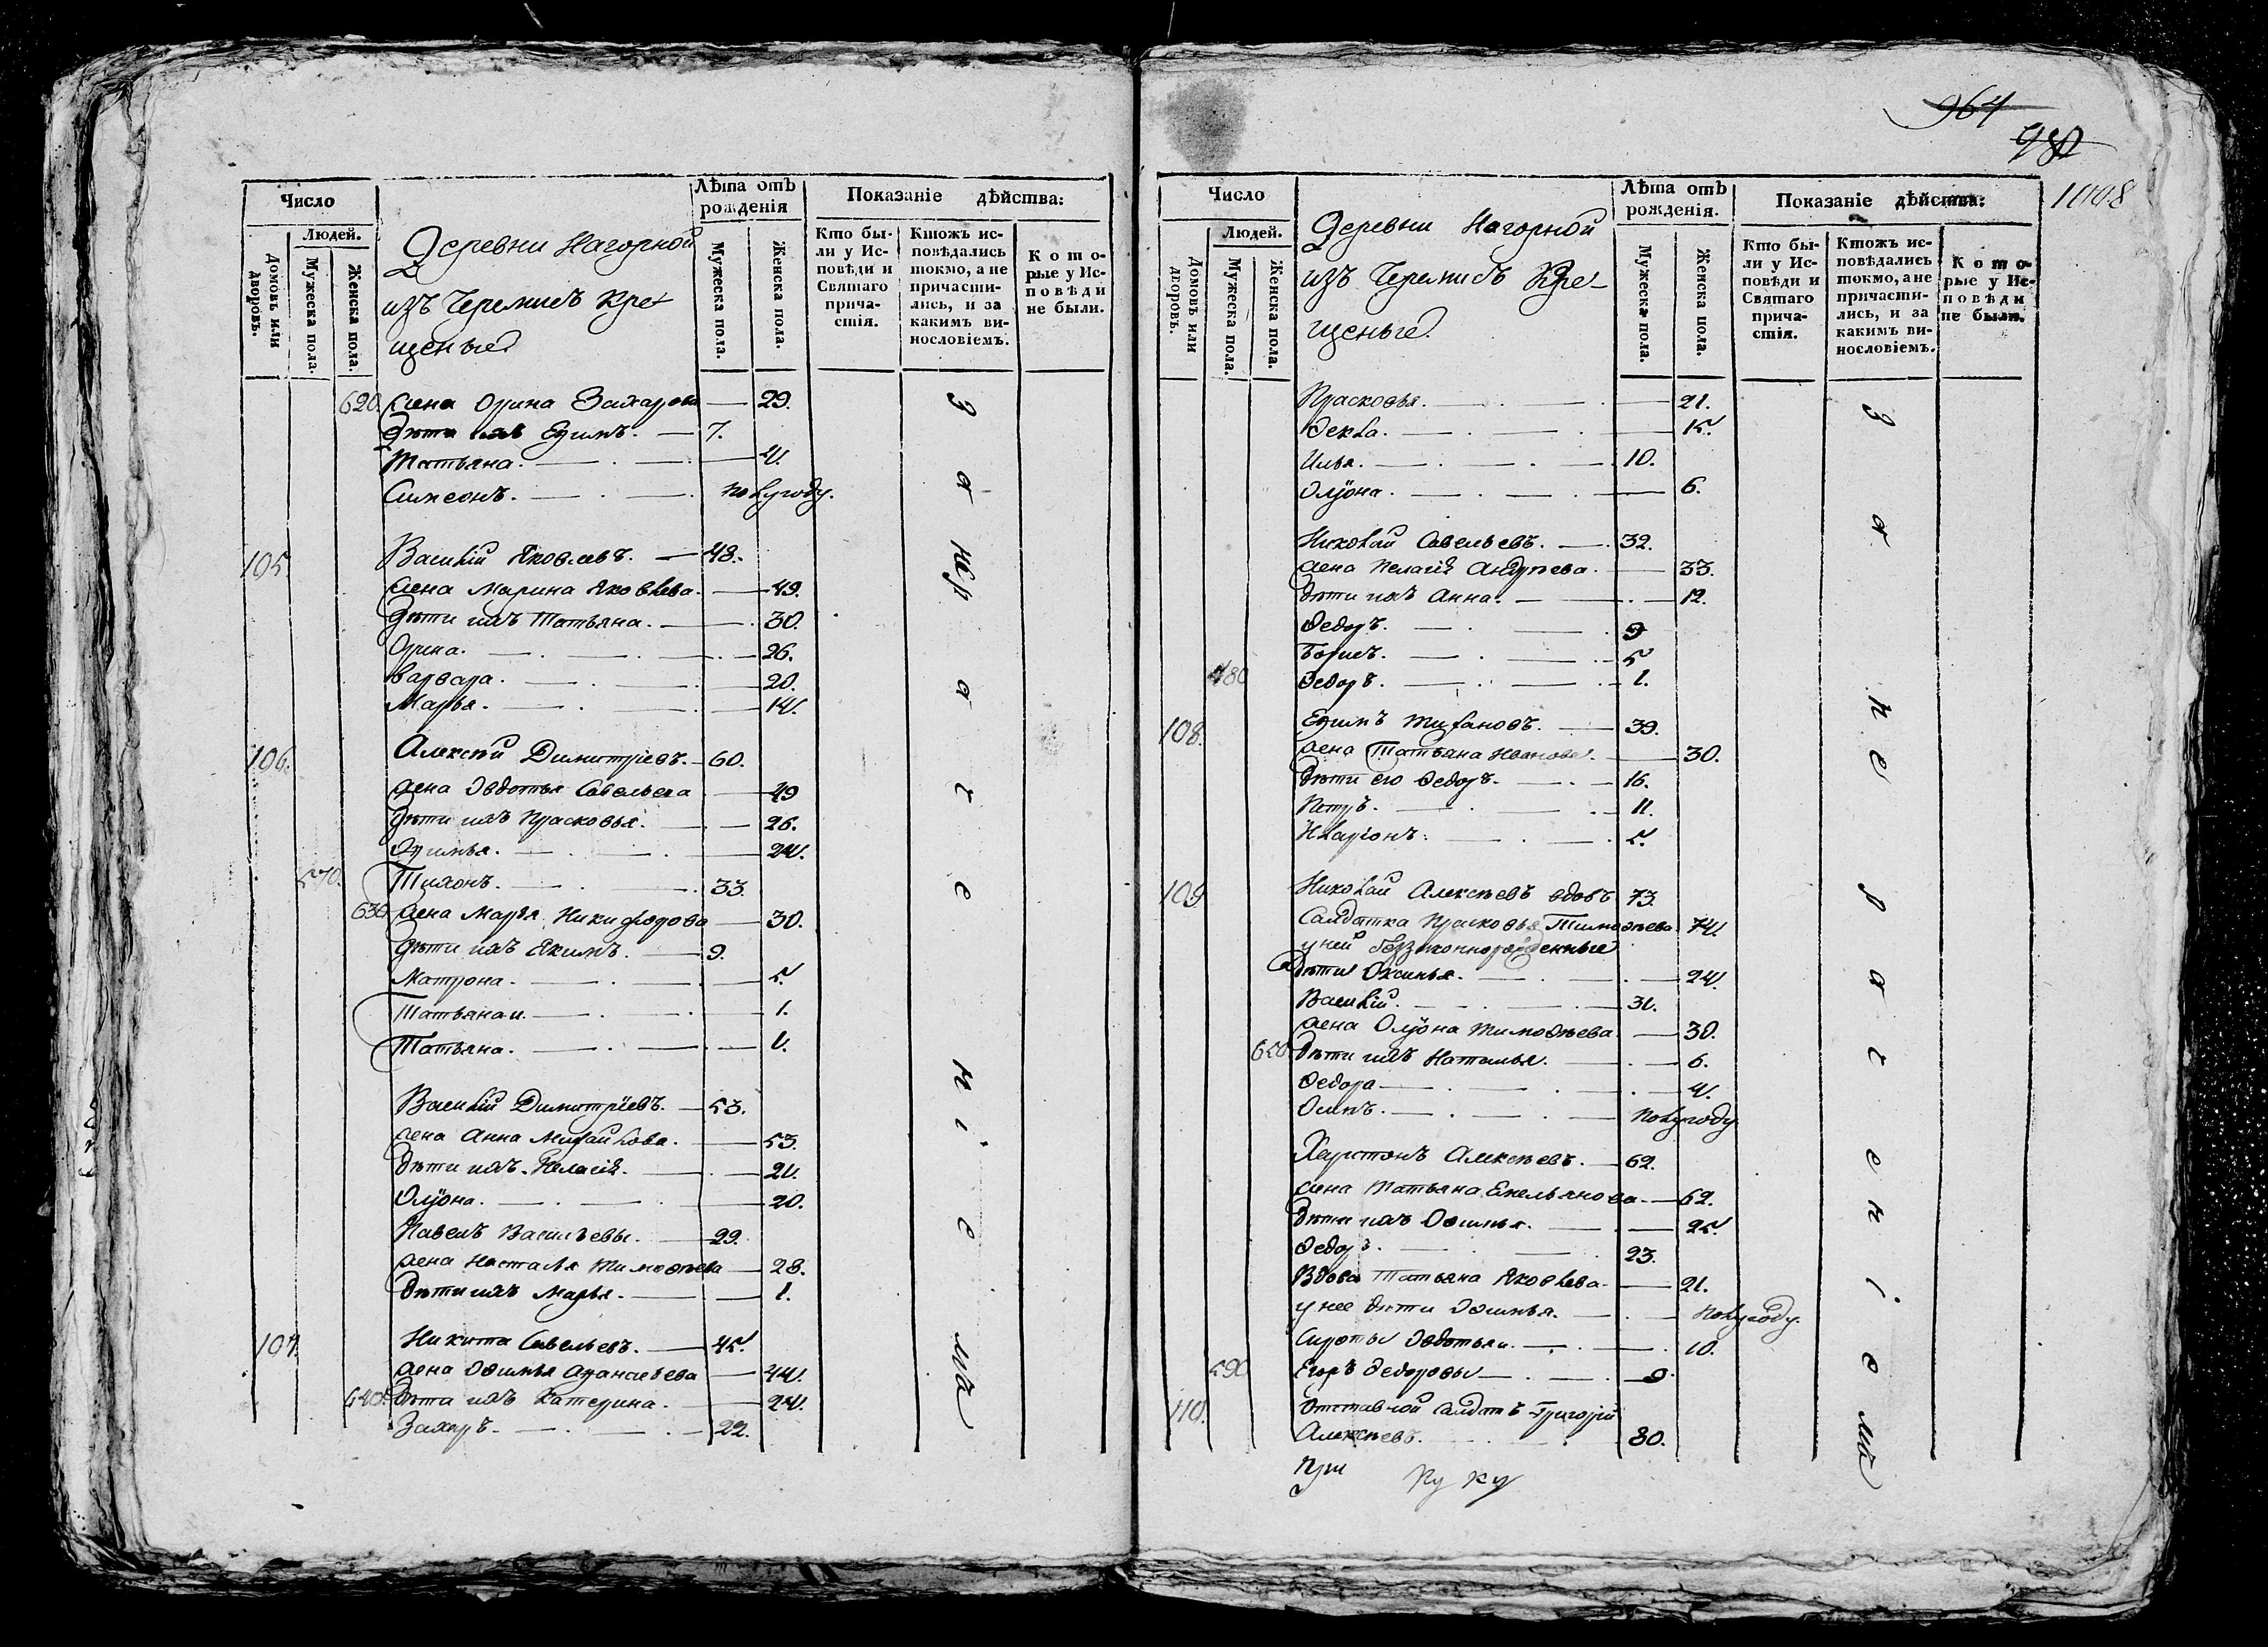 Число
Людей.
Домовъ или дворовъ.
Мужеска пола.
Женска пола.
Деревни Нагорной
изъ Черемисъ Кре-
щеные
Лѣта отъ
рожденія
Мужеска пола.
Женска пола.
Показаніе дѣйства:
Кто бы-
ли у Ис-
повѣди и
Святаго
прича-
стія.
Ктожъ ис-
повѣдались
токмо, а не
причасти-
лись, и за
какимъ ви-
нословіемъ.
Кото-
рые у Ис-
повѣди
не были.
620. жена Орина Захарова — 29.
дѣти ихъ Ефимъ. — 7.
Татьяна. — 4.
Симеонъ. — полугоду.
105. Василій Яковлевъ. — 48.
жена Марина Яковлева. — 49.
дѣти ихъ Татьяна. — 30.
Орина. — 26.
Варвара. — 20.
Марья. — 14.
106. Алексѣй Димитріевъ. — 60.
жена Овдотья Савельева — 49
дѣти ихъ Прасковья. — 26.
Офимья. — 24.
570. Тихонъ. — 33.
630 жена Марья Никифорова — 30.
дѣти ихъ Якимъ. — 9.
Матрона. — 5.
Татьяна — 1.
Татьяна. — 1.
Василій Димитріевъ. — 53.
жена Анна Михайлова. — 53.
дѣти ихъ Пелагія. — 21.
Олуона. — 20.
Павелъ Васильевы. — 29.
жена Насталя Тимоѳѣева — 28.
дѣти ихъ Марья. — 1.
107. Никита Савельевъ. — 45.
жена Овимья Афанасьева — 44.
640. дѣти ихъ Катерина. — 24.
Захаръ. — 22.
за краченіемъ
964
980
1008
Число
Людей.
Домовъ или дворовъ.
Мужеска пола.
Женска пола.
Деревни Нагорной
изъ Черемисъ Кре-
щеные.
Лѣта отъ
рожденія.
Мужеска пола.
Женска пола.
Показаніе дѣйства:
Кто бы-
ли у Ис-
повѣди и
Святаго
прича-
стія.
Ктожъ ис-
повѣдались
токмо, а не
причасти-
лись, и за
какимъ ви-
нословіемъ.
Кото-
рые у Ис-
повѣди
не были.
Прасковья. — 21.
Ѳекла. — 15.
Илья. — 10.
Олуона. — 6.
Николай Савельевъ. — 32.
жена Пелагія Андреева. — 33.
дѣти ихъ Анна. — 12.
Ѳедоръ. — 9
Борисъ. — 5
580 Ѳедоръ. — 1.
108. Ефимъ — 39.
жена Татьяна Иванова. — 30.
дѣти его Ѳедоръ. — 16.
Петръ. — 11.
Иларіонъ. — 5.
109 Николай Алексѣевъ вдовъ 73.
Салдатка Прасковья Тимоѳѣева 74.
у ней беззаконнорожденные
дѣти Оксинья. — 24.
Василій. — 31.
жена Олуона Тимоѳѣева. — 30.
650. дѣти ихъ Наталья. — 6.
Ѳедора — 4.
Осипъ. — полугоду
Алексѣевъ. — 62.
жена Татьяна Емельянова. — 62.
дѣти ихъ Овимья. — 25.
Ѳедоръ. — 23.
Вдова Татьяна Яковлева. — 21.
у нее дѣти Овимья. — полугоду.
Сироты Овдотья — 10.
590 Егоръ Ѳедоровы — 9.
110. Отставной салдатъ Григорій
Алексѣевъ. — 80.